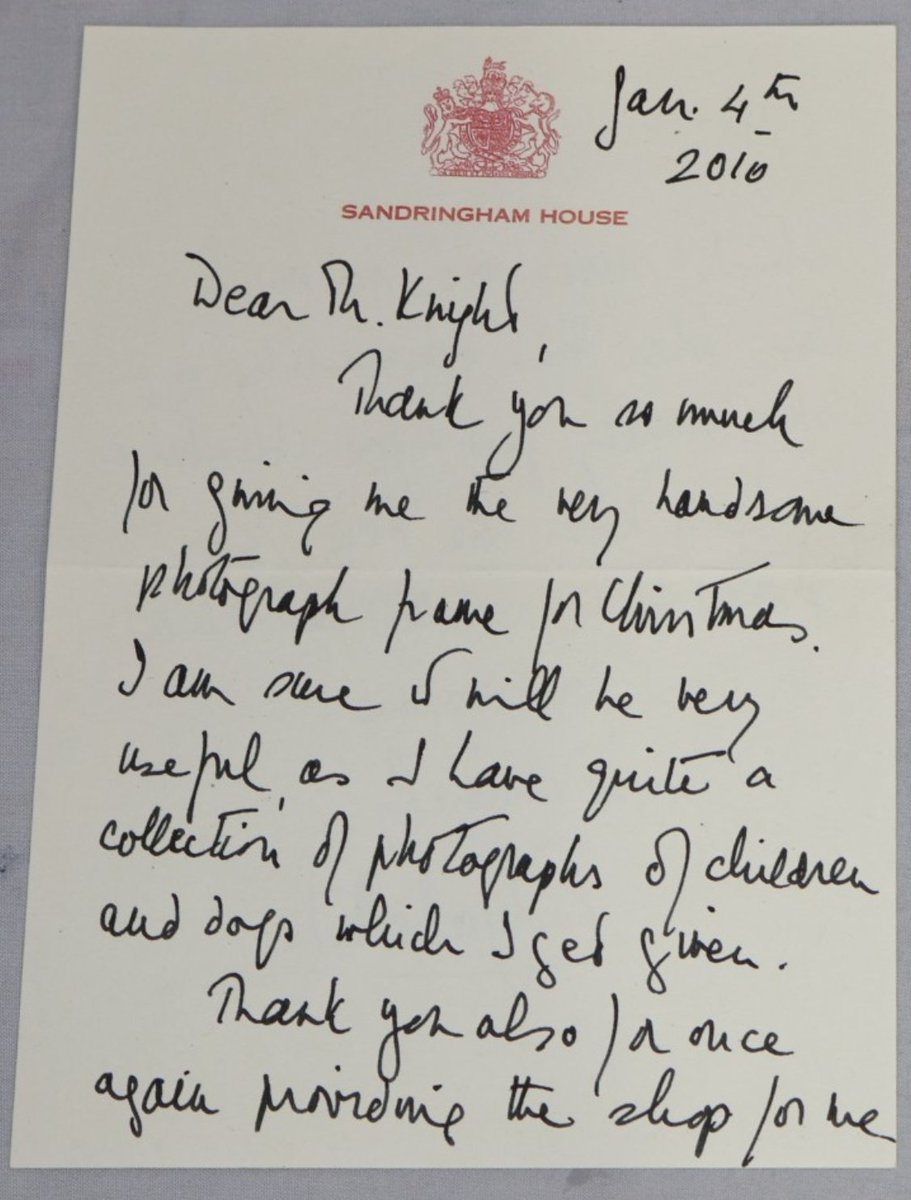 Jan. 4th
2010
SANDRINGHAM HOUSE
Dear Mr. Knight,
Thank you so much
for giving me the very handsome
photograph frame for Christmas.
I am sure it will be very
useful, as I have quite a
collection of photographs of children
and dogs which I get given.
Thank you also for once
again providing the shop for me